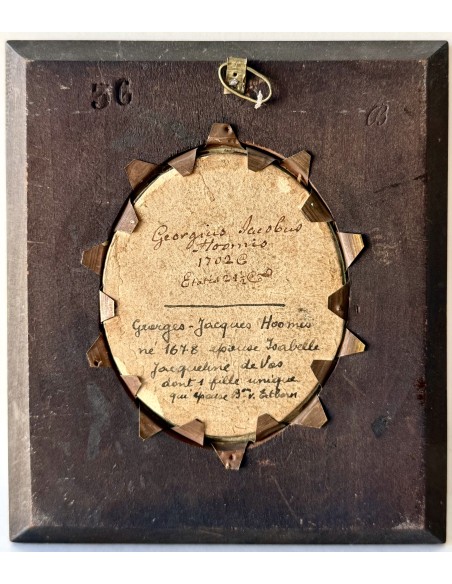 56
Georgius Jacobus
Hoomis
1702
Etatis 24½
Georges-Jacques Hoomis
né 1678 épouse Isabelle
Jacqueline de Vos
dont 1 fille unique
qui épouse Bon v.